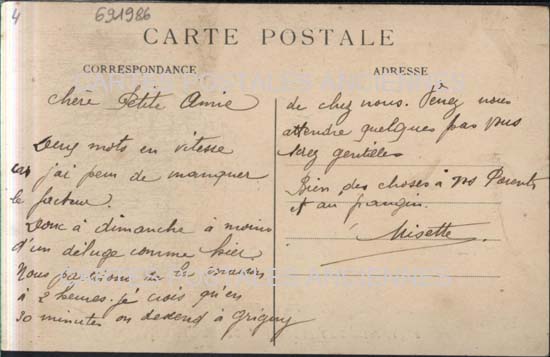 4
691986
CARTE POSTALE
CORRESPONDANCE
ADRESSE
CARTES POSTALES ANCIENNES
chère Petite Amie
Deux mots en vitesse
car j'ai peur de manquer
le facteur.
Donc à dimanche à moins
d'un déluge comme hier
Nous partirons de
à 2 heures. je crois qu'en
30 minutes on descend à Grigny
de chez nous. Venez nous
attendre quelques pas vous
serez gentilles
Bien des choses à vos Parents
et au frangin.
Misette.
CARTES POSTALES ANCIENNES